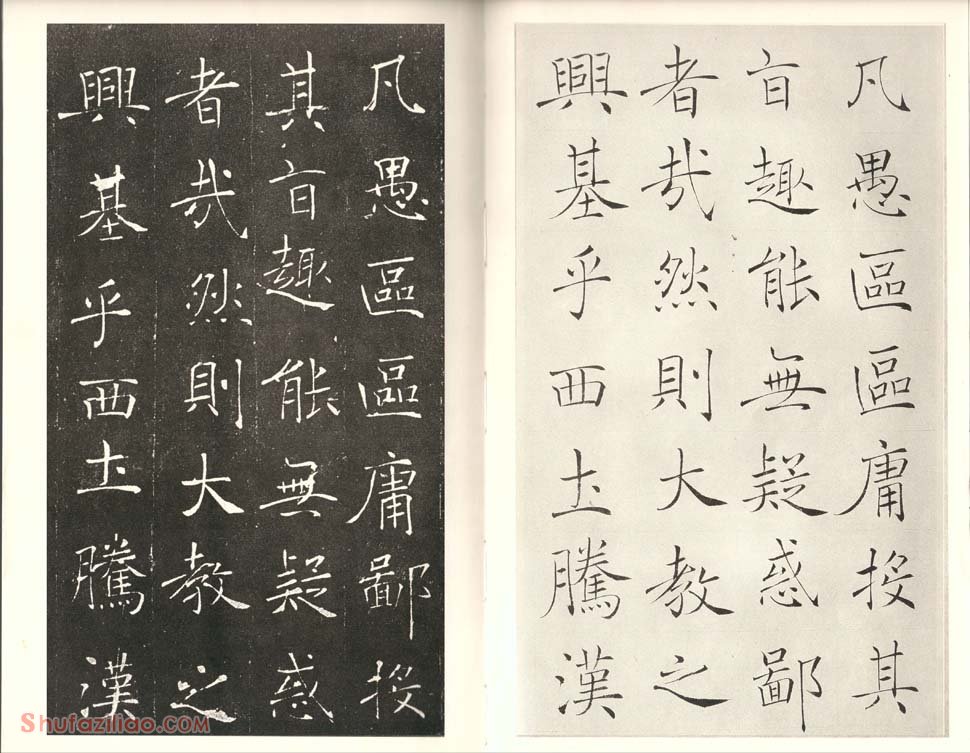 凡愚區區庸投其
旨趣能無疑惑鄙
者哉然則大教之
興基乎西土騰漢
凡愚區區庸鄙投
其旨趣能無疑惑
者哉然則大教之
興基乎西土騰漢
Shufaziliao.com